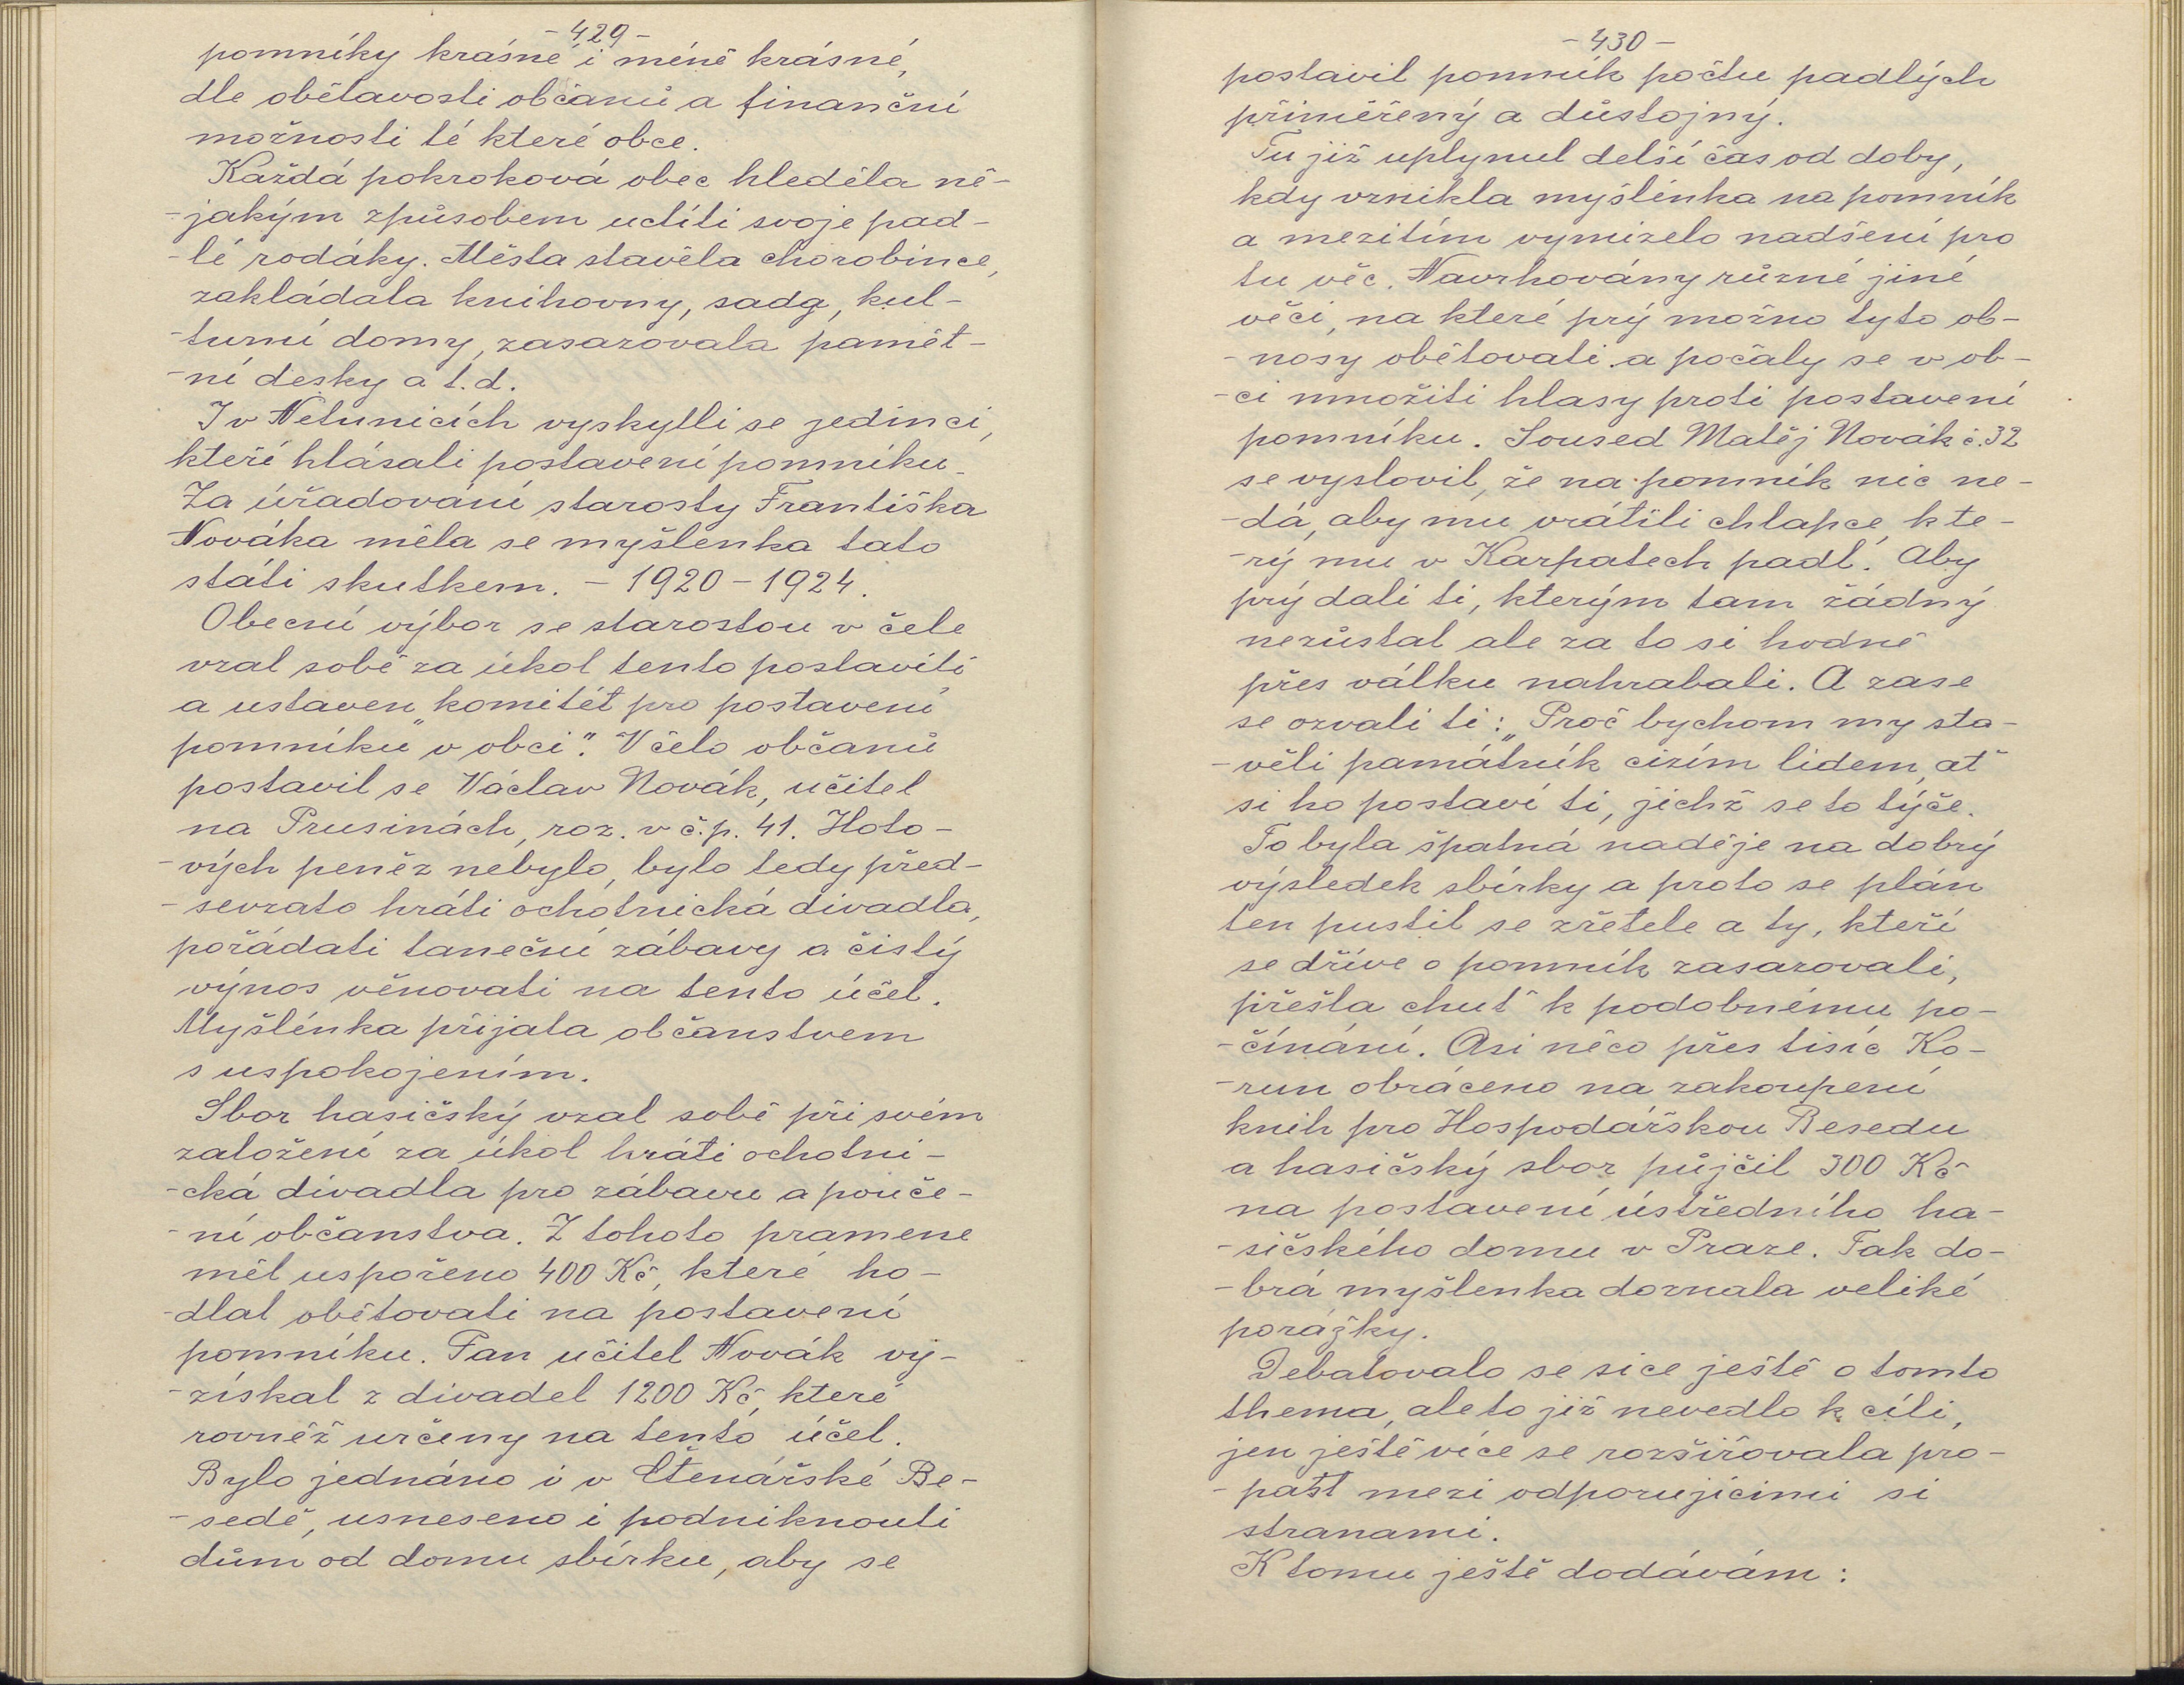 - 429 -
pomníky krásné i méně krásné,
dle obětavosti občanů a finanční
možnosti té které obce.
Každá pokroková obec hleděla ně-
-jakým způsobem uctíti svoje pad-
-lé rodáky. Města stavěla chorobince,
zakládala knihovny, sady, kul-
-turní domy, zasazovala pamět-
-ní desky a t.d.
I v Netunicích vyskytli se jedinci,
kteří hlásali postavení pomníku.
Za úřadování starosty Františka
Nováka měla se myšlenka tato
státi skutkem. - 1920 - 1924.
Obecní výbor se starostou v čele
vzal sobě za úkol tento postaviti
a ustaven „komitét pro postavení
pomníku v obci". V čelo občanů
postavil se Václav Novák, učitel
na Prusinách, roz. v č.p. 41. Hoto-
-vých peněz nebylo, bylo tedy před-
-sevzato hráti ochotnická divadla,
pořádati taneční zábavy a čistý
výnos věnovati na tento účel.
Myšlénka přijata občanstvem
s uspokojením.
Sbor hasičský vzal sobě při svém
založení za úkol hráti ochotni-
-cká divadla pro zábavu a pouče-
-ní občanstva. Z tohoto pramene
měl uspořeno 400 Kč, které ho-
-dlal obětovati na postavení
pomníku. Pan učitel Novák vy-
-získal z divadel 1200 Kč, které
rovněž určeny na tento účel.
Bylo jednáno i v Čtenářské Be-
-sedě, usneseno i podniknouti
dům od domu sbírku, aby se
- 430 -
postavil pomník počtu padlých
přiměřený a důstojný.
Tu již uplynul delší čas od doby,
kdy vznikla myšlénka na pomník
a mezitím vymizelo nadšení pro
tu věc. Navrhovány různé jiné
věci, na které prý možno tyto ob-
-nosy obětovati a počaly se v ob-
-ci množiti hlasy proti postavení
pomníku. Soused Matěj Novák č. 32
se vyslovil, že na pomník nic ne-
-dá, aby mu vrátili chlapce, kte-
-rý mu v Karpatech padl. Aby
prý dali ti, kterým tam žádný
nezůstal ale za to si hodně
přes válku nahrabali. A zase
se ozvali ti: „Proč bychom my sta-
-věli památník cizím lidem, ať
si ho postaví ti, jichž se to týče.
To byla špatná naděje na dobrý
výsledek sbírky a proto se plán
ten pustil se zřetele a ty, kteří
se dříve o pomník zasazovali,
přešla chuť k podobnému po-
-čínání. Asi něco přes tisíc Ko-
-run obráceno na zakoupení
knih pro Hospodářskou Besedu
a hasičský sbor půjčil 300 Kč
na postavení ústředního ha-
-sičského domu v Praze. Tak do-
-brá myšlenka doznala veliké
porážky.
Debatovalo se sice ještě o tomto
thema, ale to již nevedlo k cíli,
jen ještě více se rozšiřovala pro-
-pasť mezi odporujícími si
stranami.
K tomu ještě dodávám: